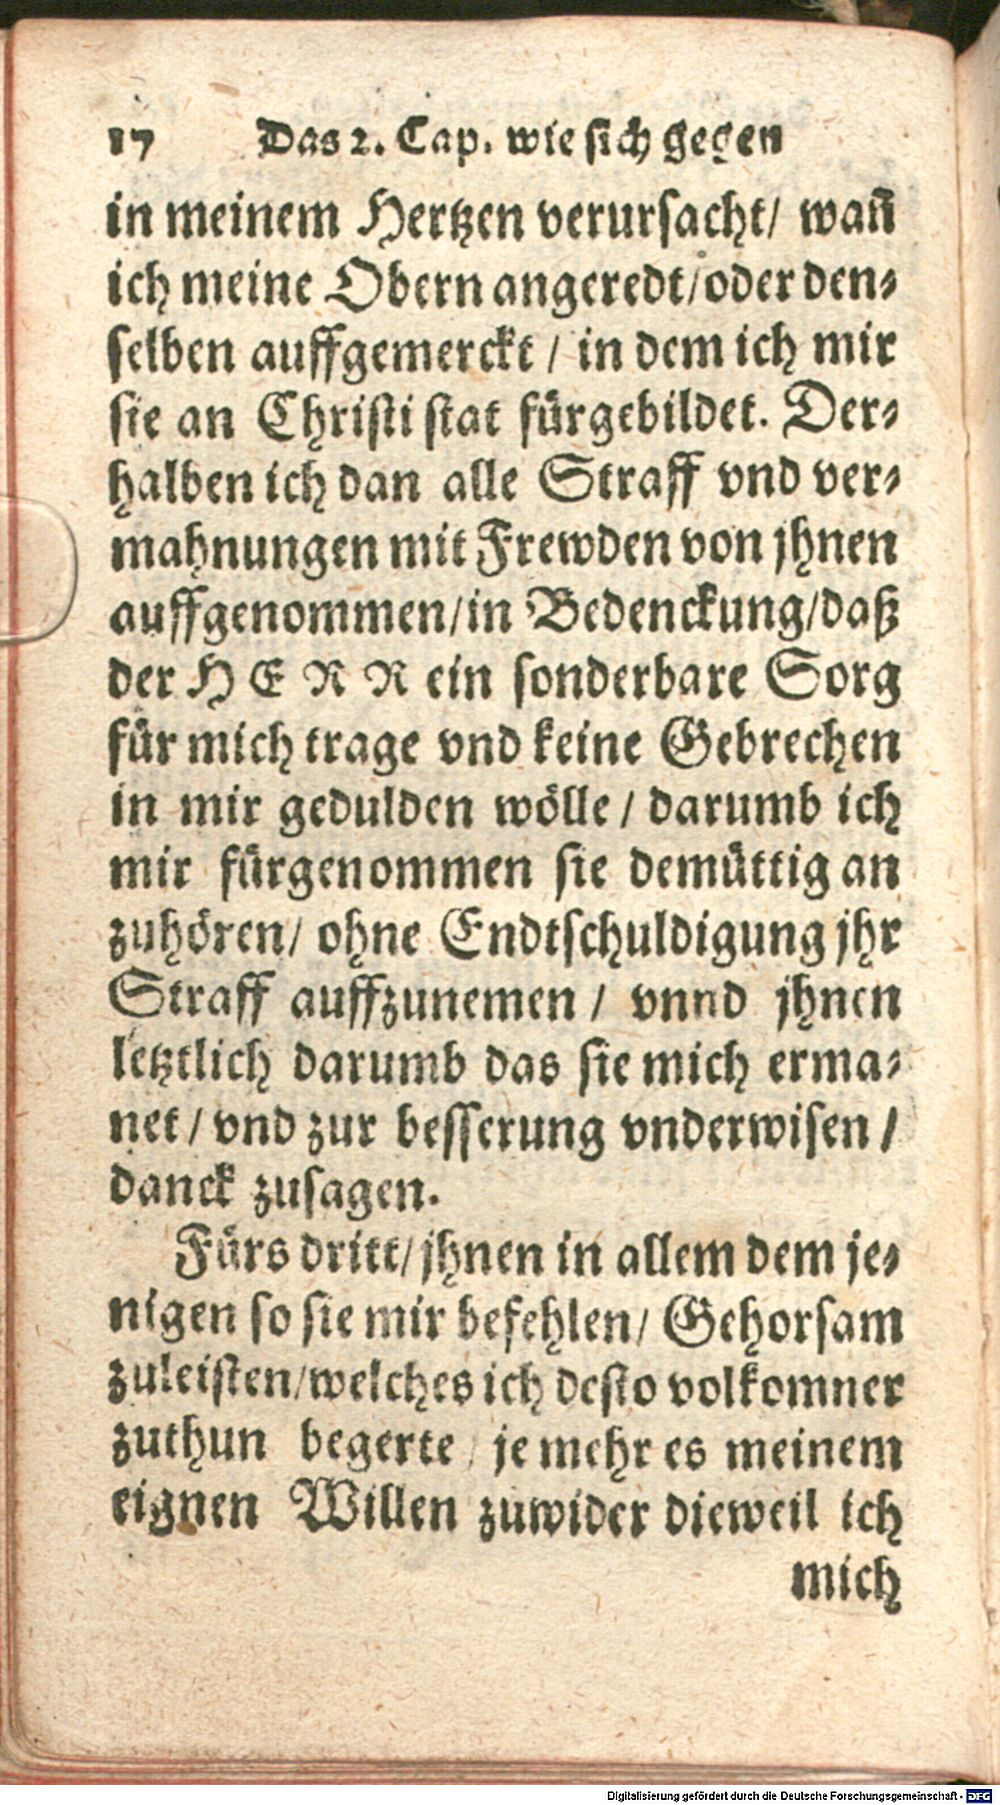 17 Das 2. Cap. wie sich gegen
in meinem Hertzen verursacht/ wañ
ich meine Obern angeredt/oder den⸗
selben auffgemerckt / in dem ich mir
sie an Christi stat fürgebildet. Der⸗
halben ich dan alle Straff vnd ver⸗
mahnungen mit Frewden von jhnen
auffgenommen/in Bedenckung/daß
der HERR ein sonderbare Sorg
für mich trage vnd keine Gebrechen
in mir gedulden wölle / darumb ich
mir fürgenommen sie demüttig an
zuhören/ ohne Endtschuldigung jhr
Straff auffzunemen / vnnd jhnen
letztlich darumb das sie mich erma⸗
net / vnd zur besserung vnderwisen /
danck zusagen.
Fürs dritt/jhnen in allem dem je⸗
nigen so sie mir befehlen/ Gehorsam
zuleisten/welches ich desto volkomner
zuthun begerte / je mehr es meinem
eignen Willen zuwider dieweil ich
mich
Digitalisierung gefördert durch die Deutsche Forschungsgemeinschaft - DFG